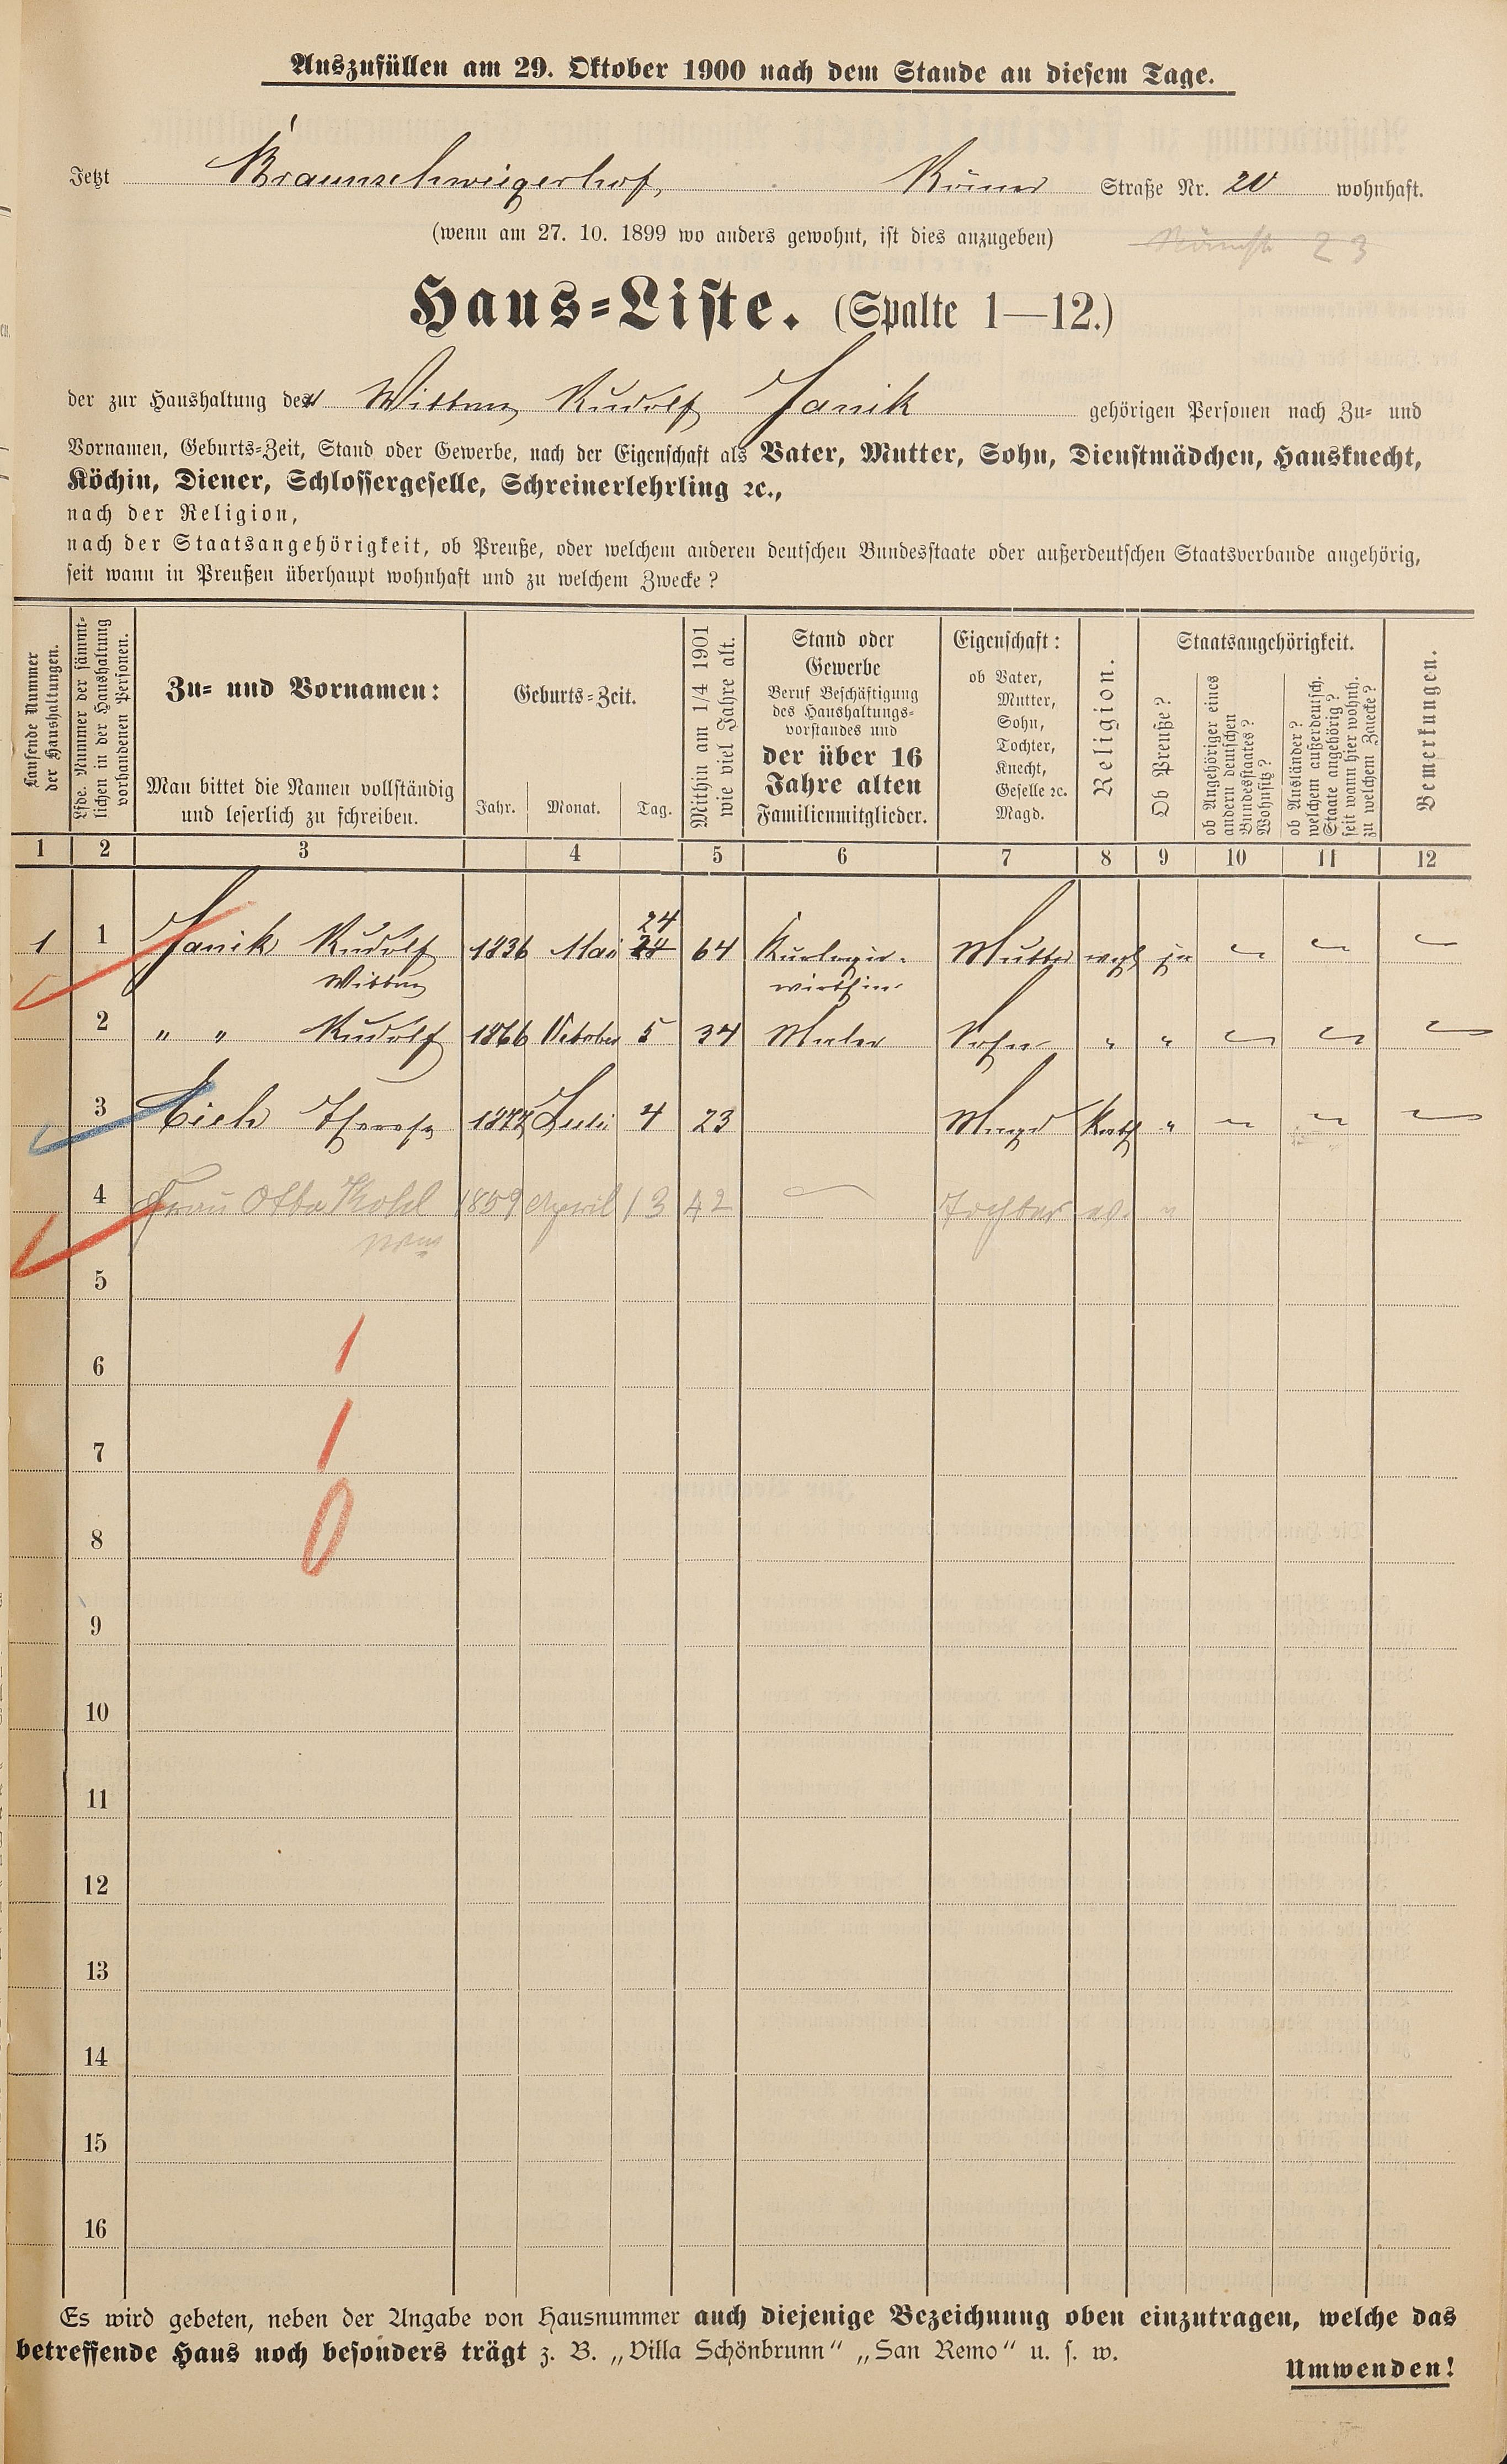 Auszufüllen am 29. Oktober 1900 nach dem Stande an diesem Tage.
Jetzt Braunschweigerhof, Römer Straße Nr. 20 wohnhaft.
(wenn am 27. 10. 1899 wo anders gewohnt, ist dies anzugeben) 23
Haus=Liste. (Spalte 1—12.)
der zur Haushaltung der Wittwe Rudolf Janik gehörigen Personen nach Zu= und
Vornamen, Geburts=Zeit, Stand oder Gewerbe, nach der Eigenschaft als Vater, Mutter, Sohn, Dienstmädchen, Hausknecht,
Köchin, Diener, Schlossergeselle, Schreinerlehrling ꝛc.,
nach der Religion,
nach der Staatsangehörigkeit, ob Preuße, oder welchem anderen deutschen Bundesstaate oder außerdeutschen Staatsverbande angehörig,
seit wann in Preußen überhaupt wohnhaft und zu welchem Zwecke?
Laufende Nummer
der Haushaltungen.
Lfde. Nummer der sämmt-
lichen in der Haushaltung
vorhandenen Personen.
Zu= und Vornamen:
Man bittet die Namen vollständig
und leserlich zu schreiben.
Geburts=Zeit.
Jahr. Monat. Tag.
Mithin am 1/4 1901
wie viel Jahre alt.
Stand oder
Gewerbe
Beruf Beschäftigung
des Haushaltungs=
vorstandes und
der über 16
Jahre alten
Familienmitglieder.
Eigenschaft:
ob Vater,
Mutter,
Sohn,
Tochter,
Knecht,
Geselle ꝛc.
Magd.
Religion.
Staatsangehörigkeit.
Ob Preuße?
ob Angehöriger eines
andern deutschen
Bundesstaates?
Wohnsitz?
ob Ausländer?
welchem außerdeutsch.
Staate angehörig?
seit wann hier wohnh.
zu welchem Zwecke?
Bemerkungen.
1 2 3 4 5 6 7 8 9 10 11 12
24
1 1 Janik Rudolf 1836 Mai 24 64 Kurlogir- Mutter evgl ja
Wittwe wirthin
2 " " Rudolf 1866 October 5 34 Maler Sohn " "
3 Eich Therese 1877 Juli 4 23 Magd Kath "
4 Frau Otto Kohl 1859 April 13 42 Tochter ev. "
5
6
7
8
9
10
11
12
13
14
15
16
Es wird gebeten, neben der Angabe von Hausnummer auch diejenige Bezeichnung oben einzutragen, welche das
betreffende Haus noch besonders trägt z. B. „Villa Schönbrunn“ „San Remo“ u. s. w.
Umwenden!